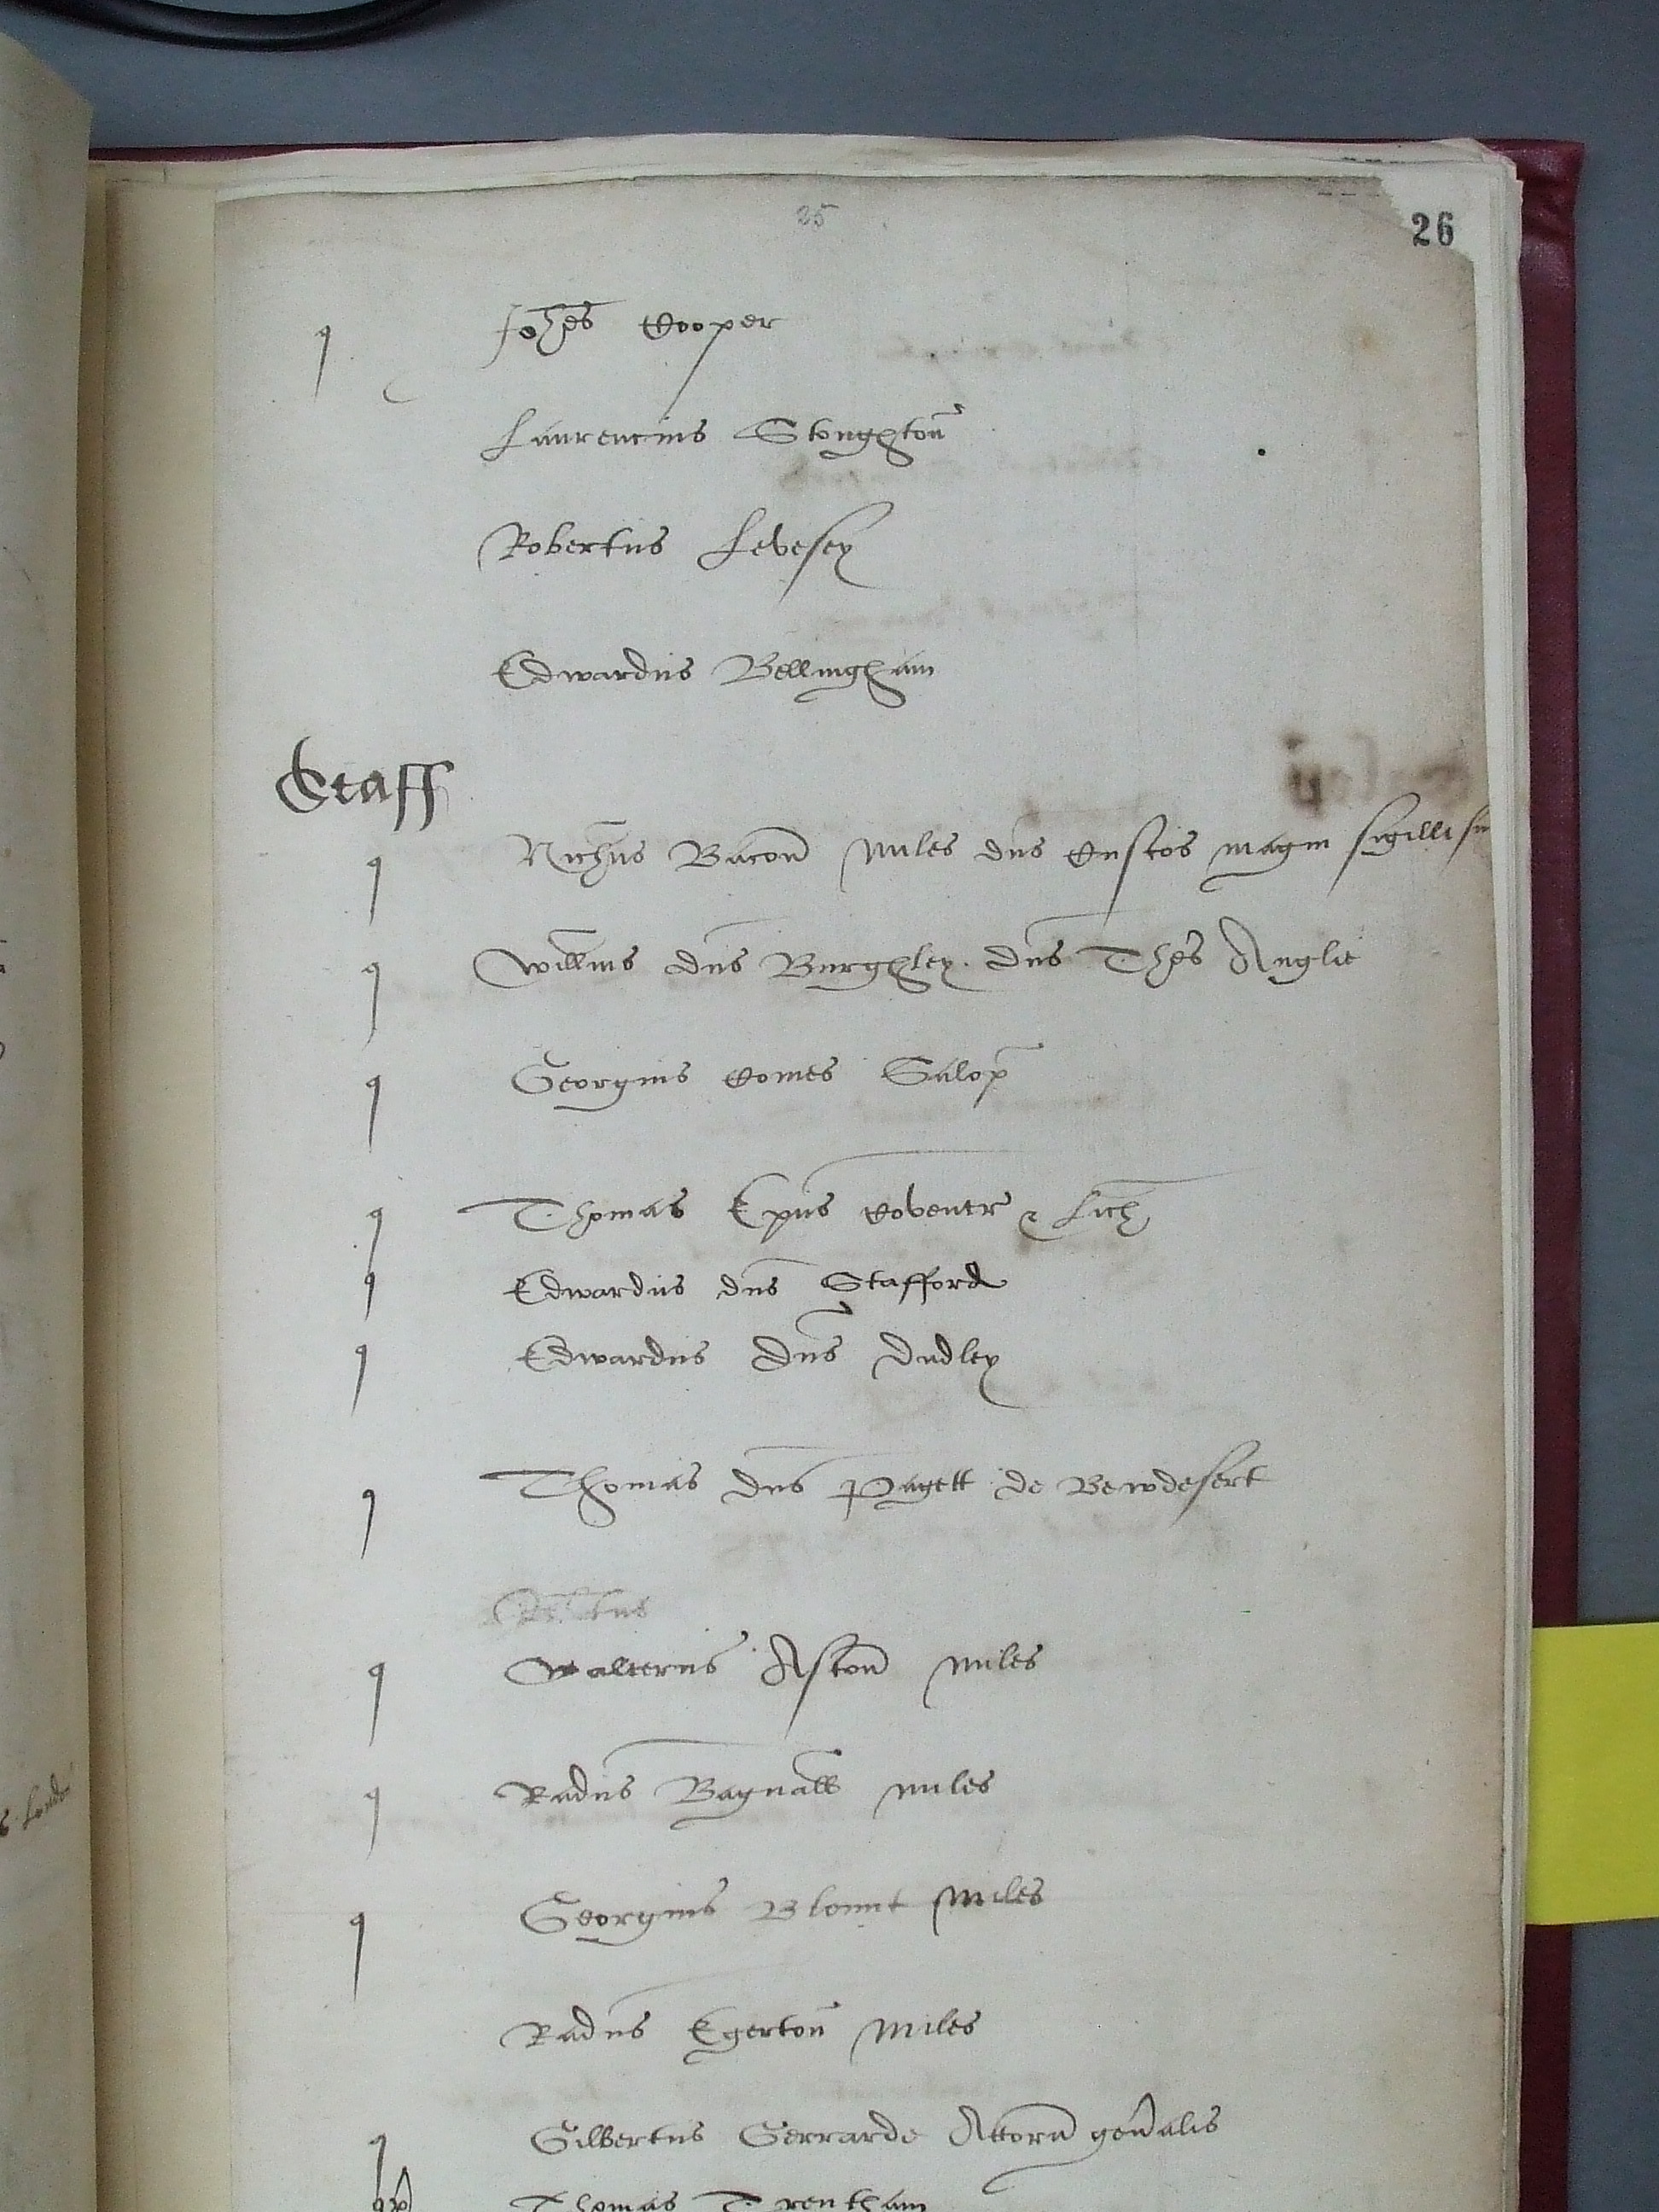 25
26
Johes Cooper
Laurencius Stoughton
Robertus Levesey
Edwardus Bellingham
Staff
Nichus Bacon miles dns Custos magni sigilli
Willms dns Burghley dns Thes Anglie
Georgius Comes Salop
Thomas Epus Coventr & Lich
Edwardus dns Stafford
Edwardus Dns Dudley
Thomas dns Pagett de Bewdesert
Walterus Aston miles
Radus Bagnall miles
Georgius Blount miles
Radus Egerton miles
Gilbertus Gerrarde Attorn genalis
Thomas Trentham